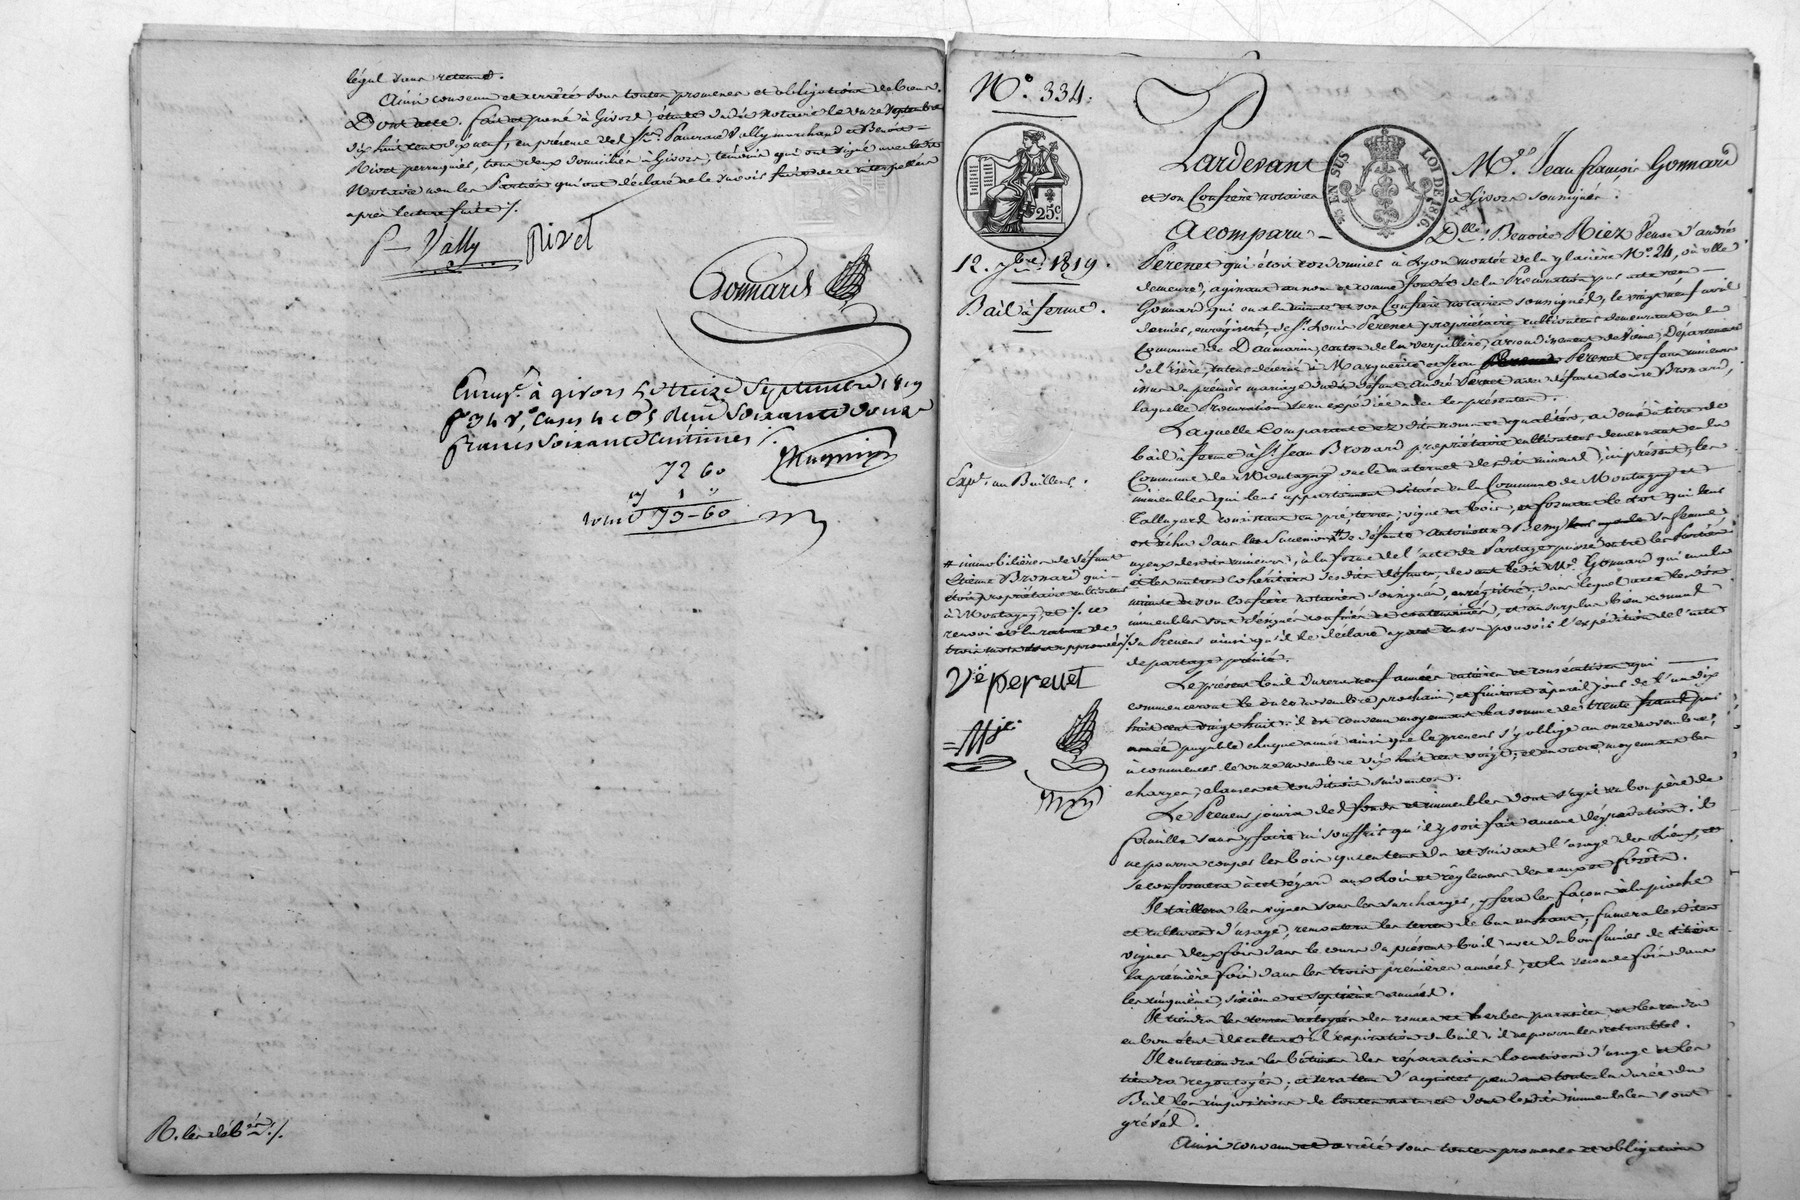 légal sans retenue.
Ainsi convenu et arrêté sous toutes promesses et obligations de biens.
Dont acte. fait et passé à Givors, étude dudit notaire le onze septembre
dix huit cent dix neuf, en présence des Srs Pancrace Vally marchand et Benoit
Rivet perruquier, tous deux domiciliés à Givors, témoins qui ont signé avec ledit
Notaire non les Parties qui ont déclaré ne le savoir faire de ce interpellées
après lecture faite ./.
P Vally Rivet
Gonnard
Enregt. à givors Le treize Septembre 1819
fo 34 Vo, Cases 4 et 5 Reçu Soixante douze
francs Soixante Centimes
72 60
1 "
73-60
R. les débés ./.
No. 334.
Pardevant Me. Jean françois Gonnard
et son Confrère notaires à Givors soussignés.
25 EN SUS
LOI DE 1816
25c.
A comparu Dlle. Benoite Riez Veuve d'andré
12. 7bre. 1819.
Perenet qui étoit cordonnier à Lyon montée de la glacière No. 24, où elle
demeure, agissant au nom et comme fondée de la Procuration pas acte reçu
Bail à ferme.
Gonnard qui en a la minute et son Confrère notaires soussignés, le vingt neuf avril
dernier, enregistré, de Sr. Louis Perenet propriétaire cultivateur demeurant en la
Commune de Daumarin, canton de la verpillière, arrondissement de Vienne, Département
de l'isère, tuteur décerné à Marguerite et Jean Perenet enfans mineurs
issus du premier mariage dudit défunt André Perenet avec défunte Louise Bronard,
laquelle Procuration sera expédiée avec les présentes.
Laquelle Comparante ez dits noms et qualités, a donné à titre de
bail à ferme à Sr. Jean Bronard propriétaire cultivateur demeurant en la
Expt. au Bailleur.
Commune de Montagny oncle maternel desdits mineurs, ici présent; les
immeubles qui leur appartiennent situés en la Commune de Montagny et
Talluyerd consistant en prés, terres, vigne et bois, et formant le lot qui leur
est échu dans les Successions # de défunte Antoinette Remy sa femme,
# immobilières de défunt
Etienne Bronard qui
étoit propriétaire cultivateur
à Montagny, et ./. ce
renvoi et la rature de
trois mots sont approuvés ./.
ayeux desdits mineurs, à la forme de l'acte de Partage passé entre les Parties
et les autres Cohéritiers desdits défunts, devant ledit Me. Gonnard qui en a la
minute et son Confrère notaires soussignés, enregistré, dans lequel acte lesdits
immeubles sont désignés confinés et contenancés, et au surplus bien connus
du Preneur ainsi qu'il le déclare ayant en son pouvoir l'expédition de l'acte
de partage précité.
Ve perenet
Le présent bail durera neuf années entières et consécutives qui
commenceront le onze novembre prochain, et finiront à pareil jour de l'an dix
huit cent vingt huit. il est convenu moyennant la somme de trente francs par
année payable chaque année ainsi que le preneur s'y oblige au onze novembre,
à commencer le onze novembre dix huit cent vingt; et en outre moyennant les
charges, clauses et conditions suivantes.
Le Preneur jouira des fonds et immeubles dont s'agit en bon père de
famille sans y faire ni souffrir qu'il y soit fait aucune dégradation. il
ne pourra couper les bois qu'en tems dû et suivant l'usage des Lieux, et
se conformera à cet égard aux Loix et règlemens des eaux et forêts.
Il taillera les vignes sans les surcharger, y fera les façons à la pioche
et cultures d'usage, remontera les terres de bas en haut; fumera lesdites
vignes deux fois dans le cours du présent bail avec du bon fumier de litière
la première fois dans les trois premières années, et la seconde fois dans
les cinquième, sixième et septième années.
Il tiendra les terres nétoyées des ronces et herbes parasites, et les rendra
en bon état de culture à l'expiration du bail. il ne pourra les
Il entretiendra les bâtimens des réparations locatives d'usage et les
tiendra regoutoyés; et sera tenu d'acquitter pendant toute la durée du
Bail les impositions de toutes natures dont lesdits immeubles sont
grévés.
Ainsi convenu et arrêté sous toutes promesses et obligations